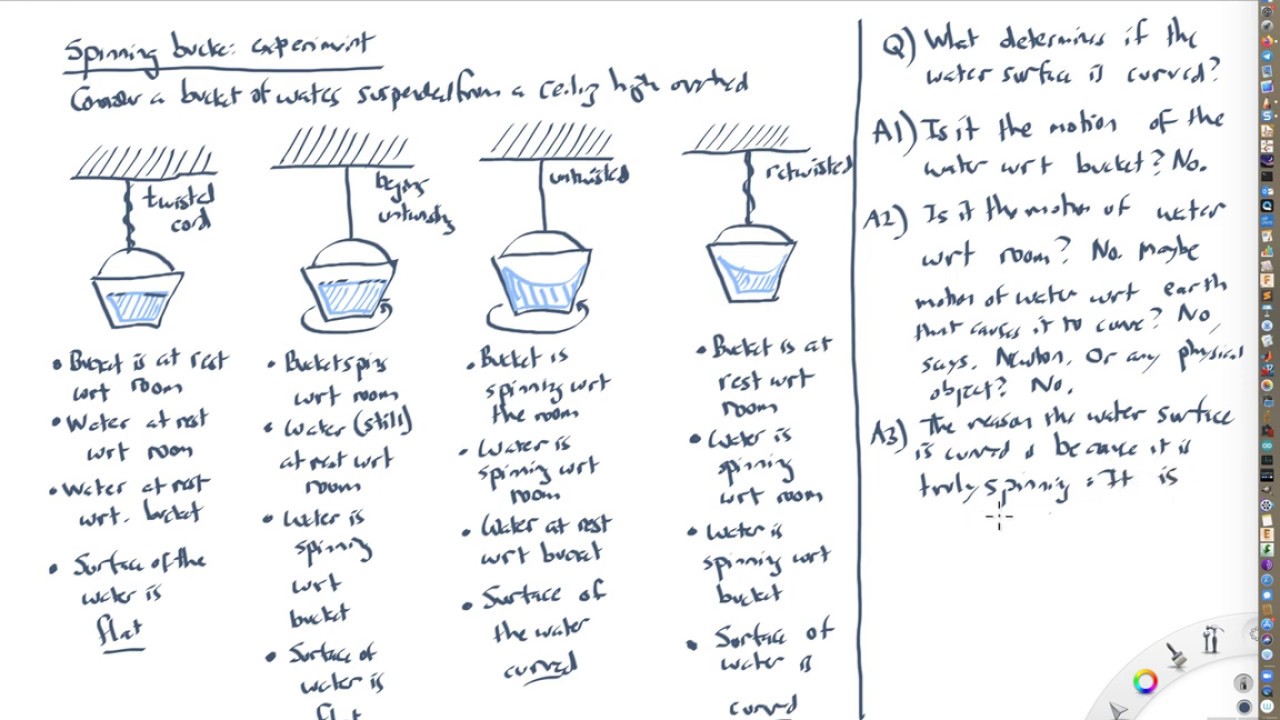 Spinning bucket experiment
Consider a bucket of water suspended from a ceiling high overhead
twisted
cord
begins
untwisting
untwisted
retwisted
• Bucket is at rest
wrt room
• Water at rest
wrt room
• Water at rest
wrt. bucket
• Surface of the
water is
flat
• Bucket spins
wrt room
• Water (still)
at rest wrt
room
• Water is
spinning
wrt
bucket
• Surface of
water is
flat
• Bucket is
spinning wrt
the room
• Water is
spinning wrt
room
• Water at rest
wrt bucket
• Surface of
the water
curved
• Bucket is at
rest wrt
room
• Water is
spinning
wrt room
• Water is
spinning wrt
bucket
• Surface of
water is
curved
Q) What determines if the
water surface is curved?
A1) Is it the motion of the
water wrt bucket? No.
A2) Is it the motion of water
wrt room? No. Maybe
motion of water wrt earth
that causes it to curve? No,
says, Newton. Or any physical
object? No.
A3) The reason the water surface
is curved is because it is
truly spinning: It is